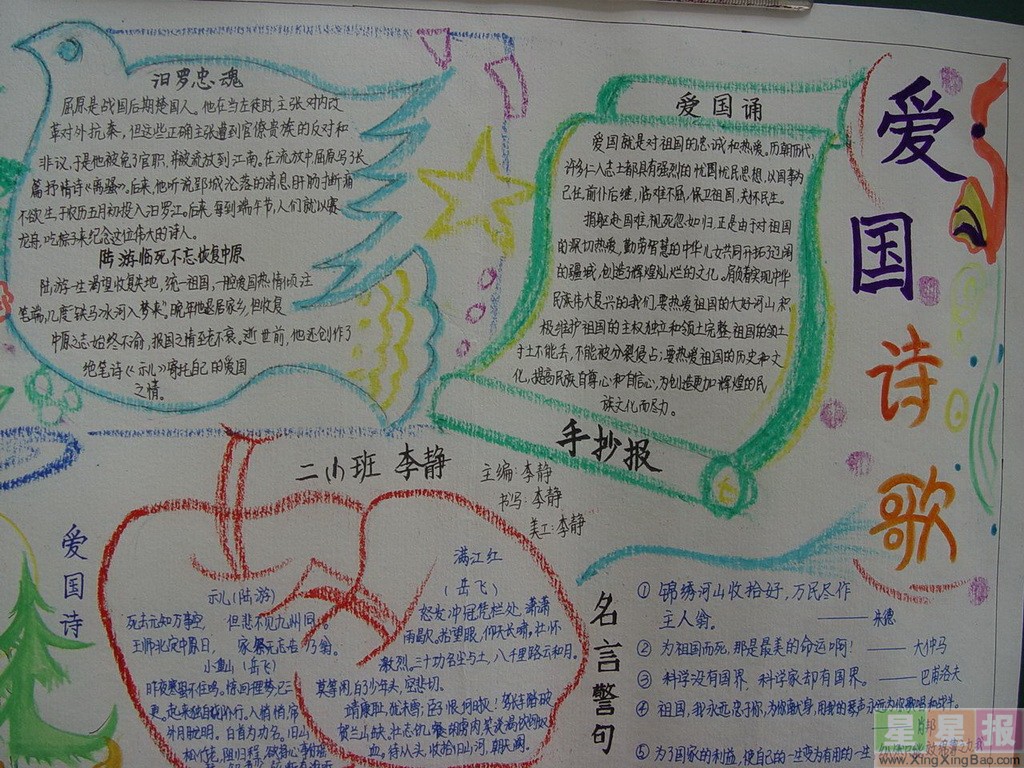 爱国诗歌
汨罗忠魂
屈原是战国后期楚国人。他在当左徒时,主张对内改
革对外抗秦,但这些正确主张遭到官僚贵族的反对和
非议,于是他被免了官职,并被流放到江南。在流放中屈原写了长
篇抒情诗《离骚》。后来,他听说郢城沦落的消息,肝肠寸断痛
不欲生,于农历五月初投入汨罗江。后来,每到端午节,人们就以赛
龙舟,吃粽子来纪念这位伟大的诗人。
陆游临死不忘恢复中原
陆游一生渴望收复失地,统一祖国,一腔爱国热情倾注
笔端,几度"铁马冰河入梦来",晚年他退居家乡,但收复
中原之志始终不渝,报国之情至老不衰。逝世前,他还创作了
绝笔诗《示儿》寄托自己的爱国
之情。
爱国诵
爱国就是对祖国的忠诚和热爱。历朝历代,
许多仁人志士都具有强烈的忧国忧民思想,以国事为
己任,前仆后继,临难不屈,保卫祖国,关怀民生。
捐躯赴国难,视死忽如归,正是由于对祖国
的深切热爱,勤劳智慧的中华儿女共同开拓了辽阔
的疆域,创造了辉煌灿烂的文化。肩负着实现中华
民族伟大复兴的我们,要热爱祖国的大好河山,积
极维护祖国的主权独立和领土完整,祖国的领土
寸土不能丢,不能被分裂侵占;要热爱祖国的历史和文
化,提高民族自尊心和自信心,为创造更加辉煌的民
族文化而尽力。
手抄报
二(1)班 李静
主编:李静
书写:李静
美工:李静
爱国诗
示儿(陆游)
死去元知万事空 但悲不见九州同。
王师北定中原日, 家祭无忘告乃翁。
小重山(岳飞)
昨夜寒蛩不住鸣。惊回千里梦,已三
更。起来独自绕阶行。人悄悄,帘
外月胧明。白首为功名。旧山
松竹老,阻归程。欲将心事付瑶
满江红
(岳飞)
怒发冲冠,凭栏处,潇潇
雨歇。抬望眼,仰天长啸,壮怀
激烈。三十功名尘与土,八千里路云和月。
莫等闲,白了少年头,空悲切。
靖康耻,犹未雪;臣子恨,何时灭!驾长车,踏破
贺兰山缺,壮志饥餐胡虏肉,笑谈渴饮匈奴
血。待从头,收拾旧山河,朝天阙。
名言警句
① 锦绣河山收拾好,万民尽作
主人翁。 ——朱德
② 为祖国而死,那是最美的命运啊! ——大仲马
③ 科学没有国界,科学家却有国界。——巴甫洛夫
④ 祖国,我永远忠于你,为你献身,用我的琴声永远为你歌唱和战斗。
⑤ 为了国家的利益,使自己的一生变为有用的一生
星星报
www.XingXingBao.com